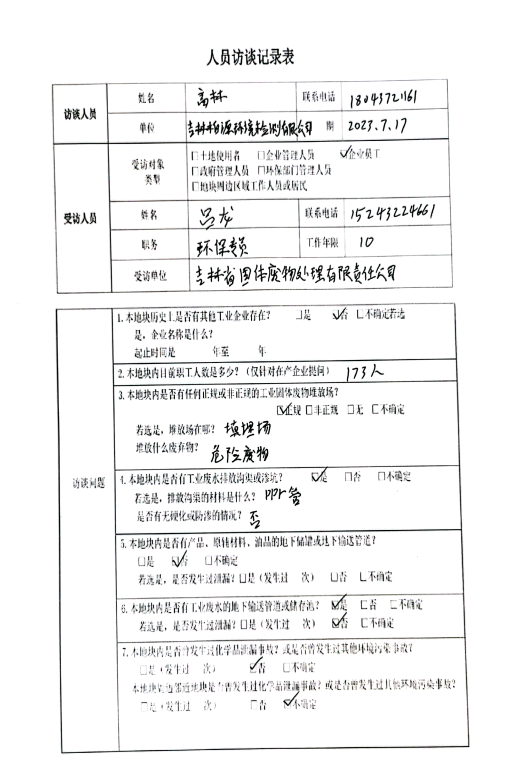 人员访谈记录表
访谈人员 姓名 高林 联系电话
单位 吉林柏源环境检测有限公司 期 2023.7.17
受访人员 受访对象类型 □土地使用者 □企业管理人员 ☑企业员工
□政府管理人员 □环保部门管理人员
□地块周边区域工作人员或居民
姓名 吕龙 联系电话 15243224661
职务 环保专员 工作年限 10
受访单位 吉林省固体废物处理有限责任公司
访谈问题
1.本地块历史上是否有其他工业企业存在? □是 ☑否 □不确定若选
是,企业名称是什么?
起止时间是 年至 年
2.本地块内目前职工人数是多少?(仅针对在产企业提问) 173人
3.本地块内是否有任何正规或非正规的工业固体废物堆放场?
☑正规 □非正规 □无 □不确定
若选是,堆放场在哪? 填埋场
堆放什么废弃物? 危险废物
4.本地块内是否有工业废水排放沟渠或渗坑? ☑是 □否 □不确定
若选是,排放沟渠的材料是什么? PPr管
是否有无硬化或防渗的情况? 否
5.本地块内是否有产品、原辅材料、油品的地下储罐或地下输送管道?
□是 ☑否 □不确定
若选是,是否发生过泄漏?□是(发生过 次) □否 □不确定
6.本地块内是否有工业废水的地下输送管道或储存池? ☑是 □否 □不确定
若选是,是否发生过泄漏?□是(发生过 次) ☑否 □不确定
7.本地块内是否曾发生过化学品泄漏事故?或是否曾发生过其他环境污染事故?
□是(发生过 次) ☑否 □不确定
本地块周边邻近地块是否曾发生过化学品泄漏事故?或是否曾发生过其他环境污染事故?
□是(发生过 次) □否 ☑不确定